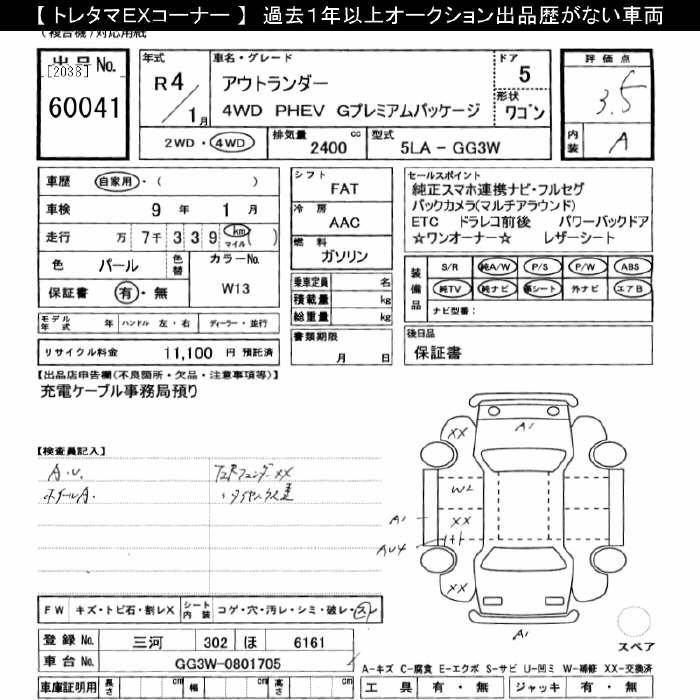 【 トレタマEXコーナー 】 過去１年以上オークション出品歴がない車両
(複合機)対応用紙
出品 No.
[2038]
60041
年式
R 4 / 1月
車名・グレード
アウトランダー
4WD PHEV Gプレミアムパッケージ
ドア
5
形状
ワゴン
2WD・4WD
排気量 2400 cc
型式 5LA - GG3W
評価点
3.5
内装 A
車歴 自家用・( )
車検 9 年 1 月
走行 万 7千 3 3 9 km マイル ( )
色 パール 色替
カラーNo. W13
保証書 有・無
シフト
FAT
冷房
AAC
燃料
ガソリン
乗車定員 名
積載量 kg
総重量 kg
セールスポイント
純正スマホ連携ナビ・フルセグ
バックカメラ(マルチアラウンド)
ETC ドラレコ前後 パワーバックドア
☆ワンオーナー☆ レザーシート
装備品
S/R 純A/W P/S P/W ABS
純TV 純ナビ 革シート 外ナビ エアB
ナビ型番:
モデル年式 年 ハンドル 左・右 ディーラー・並行
リサイクル料金 11,100 円 預託済
書類期限
月 日
後日品
保証書
【出品店申告欄(不良箇所・欠品・注意事項等)】
充電ケーブル事務局預り
【検査員記入】
A.U.
ホイールA.
XX
A1
XX
W2
XX
A1
AU4
XX
A1
スペア
FW キズ・トビ石・割レX シート内装 コゲ・穴・汚レ・シミ・破レ・スレ
登録 No. 三河 302 ほ 6161
車台 No. GG3W-0801705
車庫証明用 長さ cm 幅 cm 高さ cm
A-キズ C-腐食 E-エクボ S-サビ U-凹ミ W-補修 XX-交換済
工具 有・無 ジャッキ 有・無